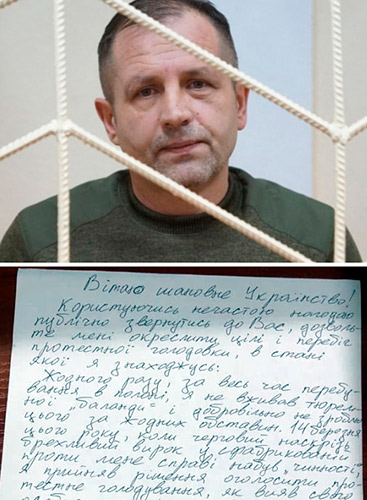 Вітаю шановне Українство!
Користуючись нечастою нагодою
публічно звернутись до Вас, дозволь-
те мені окреслити цілі і перебіг
протестної голодовки, в стані
якої я знаходжусь:
Жодного разу, за весь час перебу-
вання в полоні, я не вживав тюрем-
ної „баланди" і добровільно не зроблю
цього за жодних обставин. 14 березня
цього року, коли черговий наскрізь
брехливий вирок у сфабрикованій
проти мене справі набув „чинності",
я прийняв рішення оголосити про-
тестне голодування, як вияв